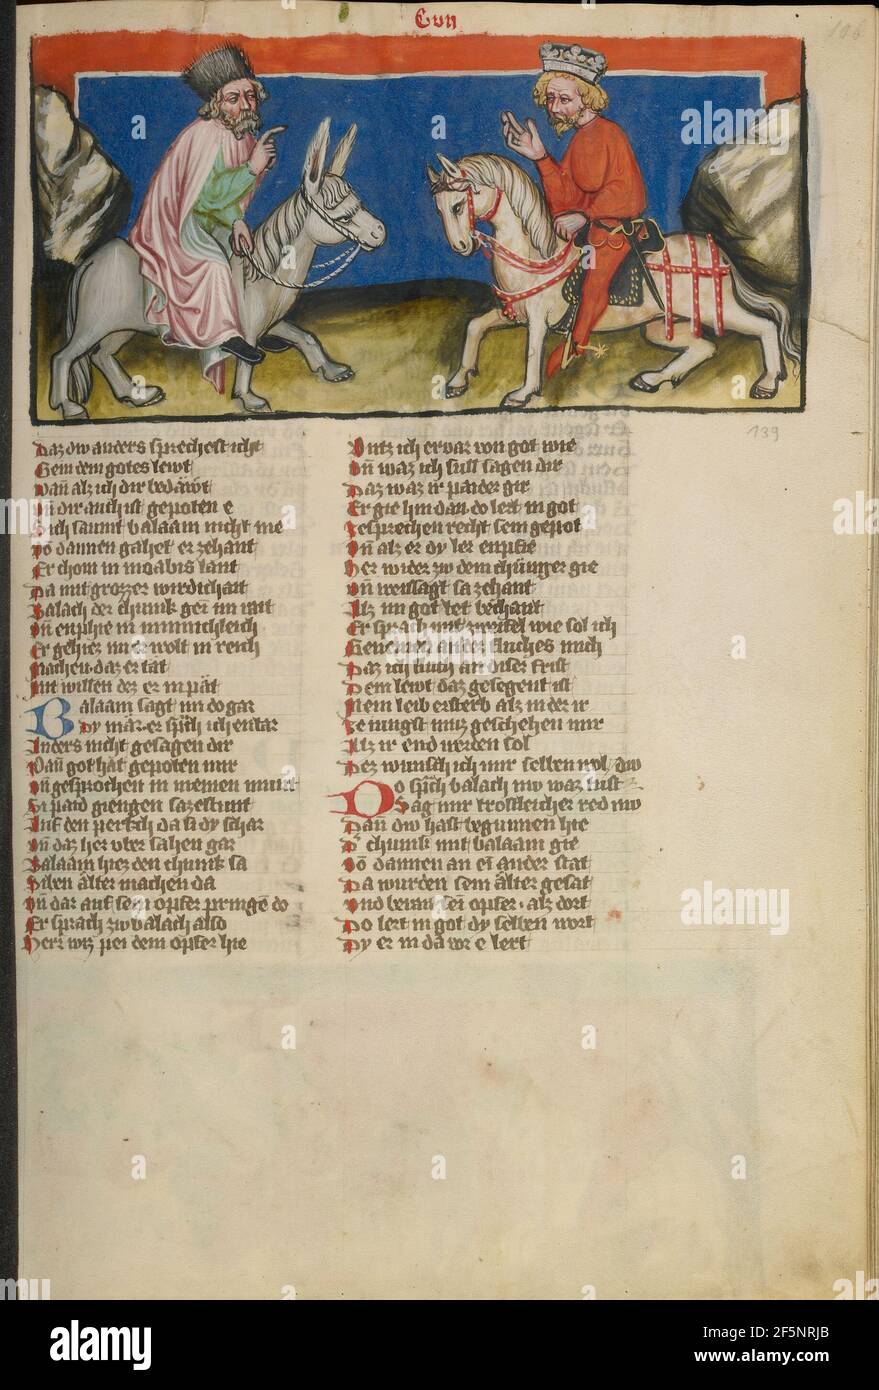 139
Daz dw anders sprechest icht
Gem dem gotes lewt
Dañ alz ich dir bedäwt
Vñ dir auch ist gepoten e
Sich saumt balaam nicht me
Võ dannen gahet er zehant
Er chom in moabis lant
Da mit grozzer wirdichait
Balach der chunik gen im rait
Vñ enphie in
Er gehiez im er wolt in reich
Machen daz er tät
Mit willen dez er in pät
Balaam sagt im do gar
Dy mär er sp̃ch ich entar
Anders nicht gesagen dir
Wañ got hat gepoten mir
Vñ gesprochen in meinen munt
Si paid giengen sazestunt
Auf den perkch da si dy schar
Vñ daz her vber sahen gar
Balaam hiez den chunik sa
Siben älter machen da
Vñ dar auf sein opfer pringẽ do
Er sprach zw balach also
Herr wiz pei dem opfer hie
Vntz ich ervar von got wie
Vñ waz ich süll sagen dir
Daz waz ir paider gir
Er gie hin dan do lert in got
Gesprechen recht sein gepot
Vñ alz er dy ler enpfie
Her wider zw dem chünige er gie
Vñ weissagt sa zehant
Alz im got tet bechant
Er sprach mit zweifel wie sol ich
Daz ich fluch an diser frist
Dem lewt daz gesegent ist
Mein leib ersterb alz in der ir
Ze iungst muz geschehen mir
Alz ir end werden sol
Dez wunsch ich mir selben wol dw
Do sp̃ch balach nw waz
Sag mir trostleicher red nw
Dañ dw hast begunnen hie
Dˢ chunik mit balaam gie
Võ dannen an eĩ ander stat
Da wurden sein älter gesat
Vnd berait seĩ opfer alz dort
Do lert in got dy selben wort
Dy er in da vor e lert
alamy
Image ID: 2F5NRJB
www.alamy.com